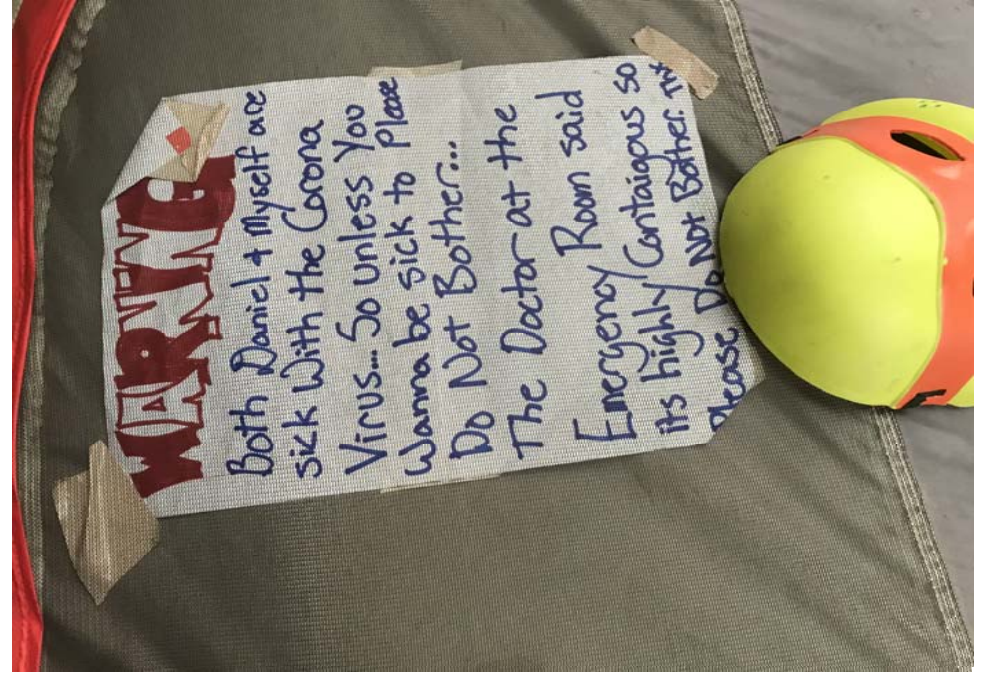 WARNING
Both Daniel + Myself are
sick With the Corona
Virus... So Unless You
Wanna be sick to Please
Do Not Bother...
The Doctor at the
Emergency Room said
its highly Contaigous so
Please Do Not Bother.